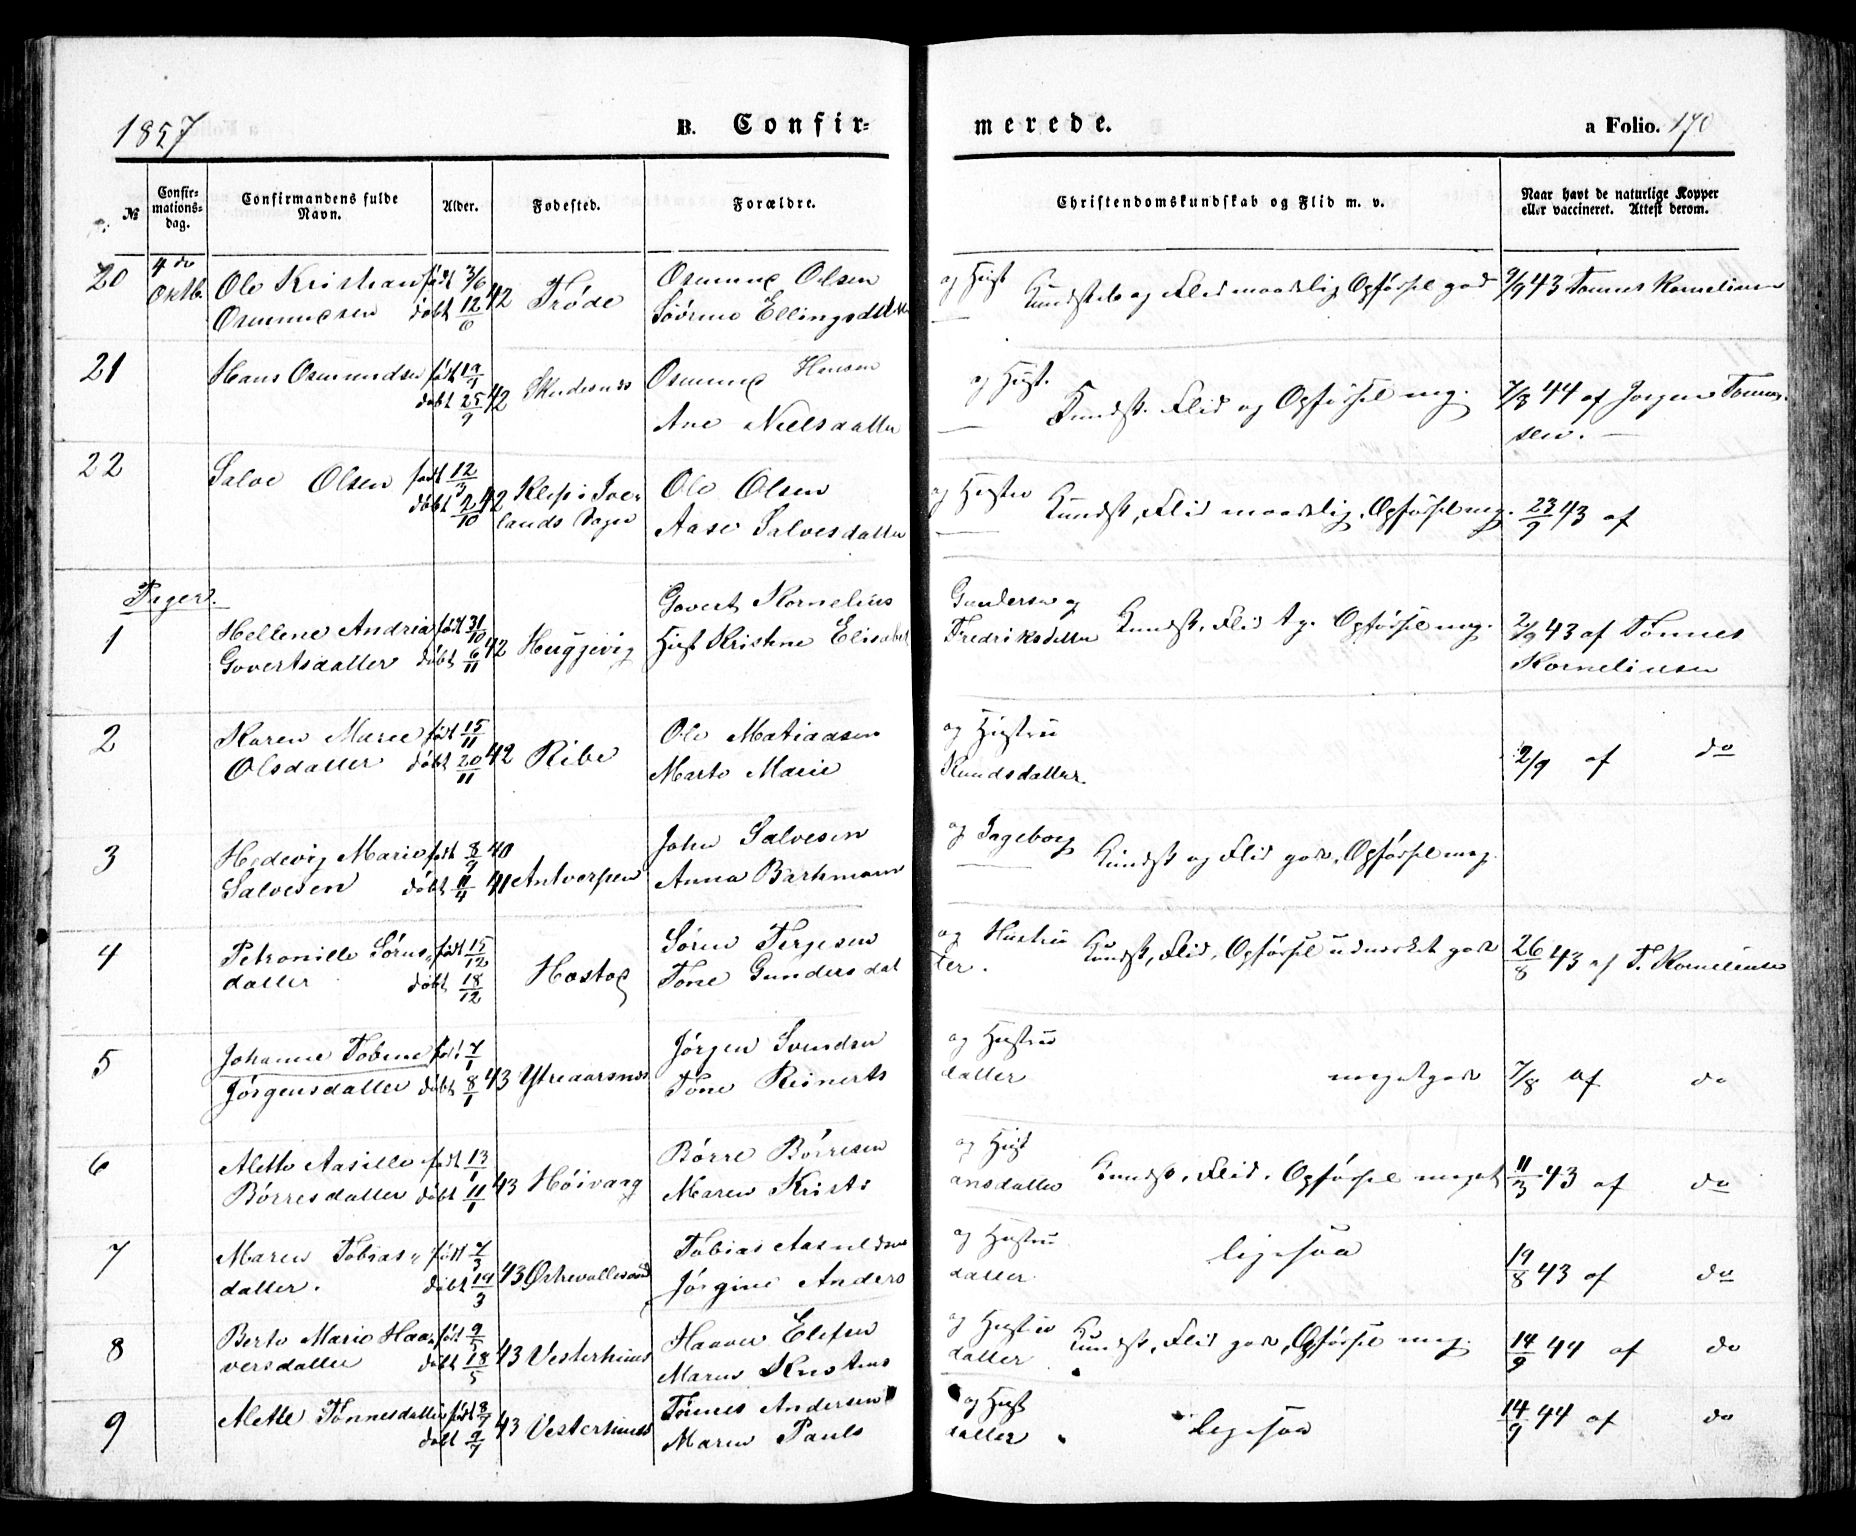 1857
B. Confir-
merede.
a Folio. 170
№
Confir-
mations-
dag.
Confirmandens fulde
Navn.
Alder.
Fødested.
Forældre.
Christendomskundskab og Flid m. v.
Naar havt de naturlige Kopper
eller vaccineret. Attest derom.
20 4de Oktb. Ole Kristian født 3/6 42 Frøde Osmund Olsen og Hust Kundskb og Flid maadelig Opførsel god 9/9 43 Tønnes Kornelius
Osmundsen døbt 12/6 Sørine Ellingsdatter
21 Hans Osmundsen født 19/9 42 Skudesnes Osmund Hansen og Hust. Kundsk. Flid og Opførsel mg. 7/3 44 af Jørgen Tønnes-
døbt 25/9 Ane Nielsdatter sen.
22 Salve Olsen født 12/3 42 Klep i Ive- Ole Olsen og Hustru Kundsk, Flid maadelig, Opførsel mg. 23/9 43 af
døbt 2/10 lands Sogn Aase Salvesdatter
Piger.
1 Hellene Andria født 31/10 42 Huggevig Govert Kornelius Gundersen og Kundsk, Flid tg. Opførsel mg. 2/9 43 af Tønnes
Govertsdatter døbt 6/11 Hust Kristine Elisabet Fredriksdatter Korneliusen
2 Karen Marie født 15/11 42 Ribe Ole Matiasen og Hustru 2/9 af do
Olsdatter døbt 20/11 Marte Marie Knudsdatter.
3 Hedevig Marie født 8/9 40 Antverpen John Salvesen og Ingeborg Kundsk og Flid god, Opførsel meg.
Salvesen døbt 11/4 41 Anna Barkmann
4 Petronille Sørns- født 15/12 Hastag Søren Tergesen og Hustru Kundsk, Flid, Opførsel udmærket god 26/8 43 af T. Korneliusen
datter døbt 18/12 Tone Gundersdat ter.
5 Johanne Tobine født 7/1 43 Ytreaarsnes Jørgen Svendsen og Hustru meget god 7/8 af do
Jørgensdatter døbt 8/1 Tone Reinerts datter
6 Alette Aasille født 13/1 43 Høivaag Børre Børresen og Hust Kundsk, Flid, Opførsel meget 11/3 43 af do
Børresdatter døbt 11/1 Maren Kristi ansdatter
7 Maren Tobias- født 7/3 43 Østrevallesand Tobias Aasuldsen og Hustru ligesaa 19/8 43 af do
datter. døbt 19/3 Jørgine Anders datter
8 Berte Marie Haa- født 9/5 43 Vesterhuus Haaver Elefsen og Hustru Kundsk, Flid god, Opførsel meg. 14/9 44 af do
versdatter døbt 18/5 Maren Kristens datter
9 Alette Tønnesdatter født 8/7 43 Vesterhuus Tønnes Andersen og Hust Ligesaa 14/9 44 af do
døbt 9/7 Maren Pauls datter